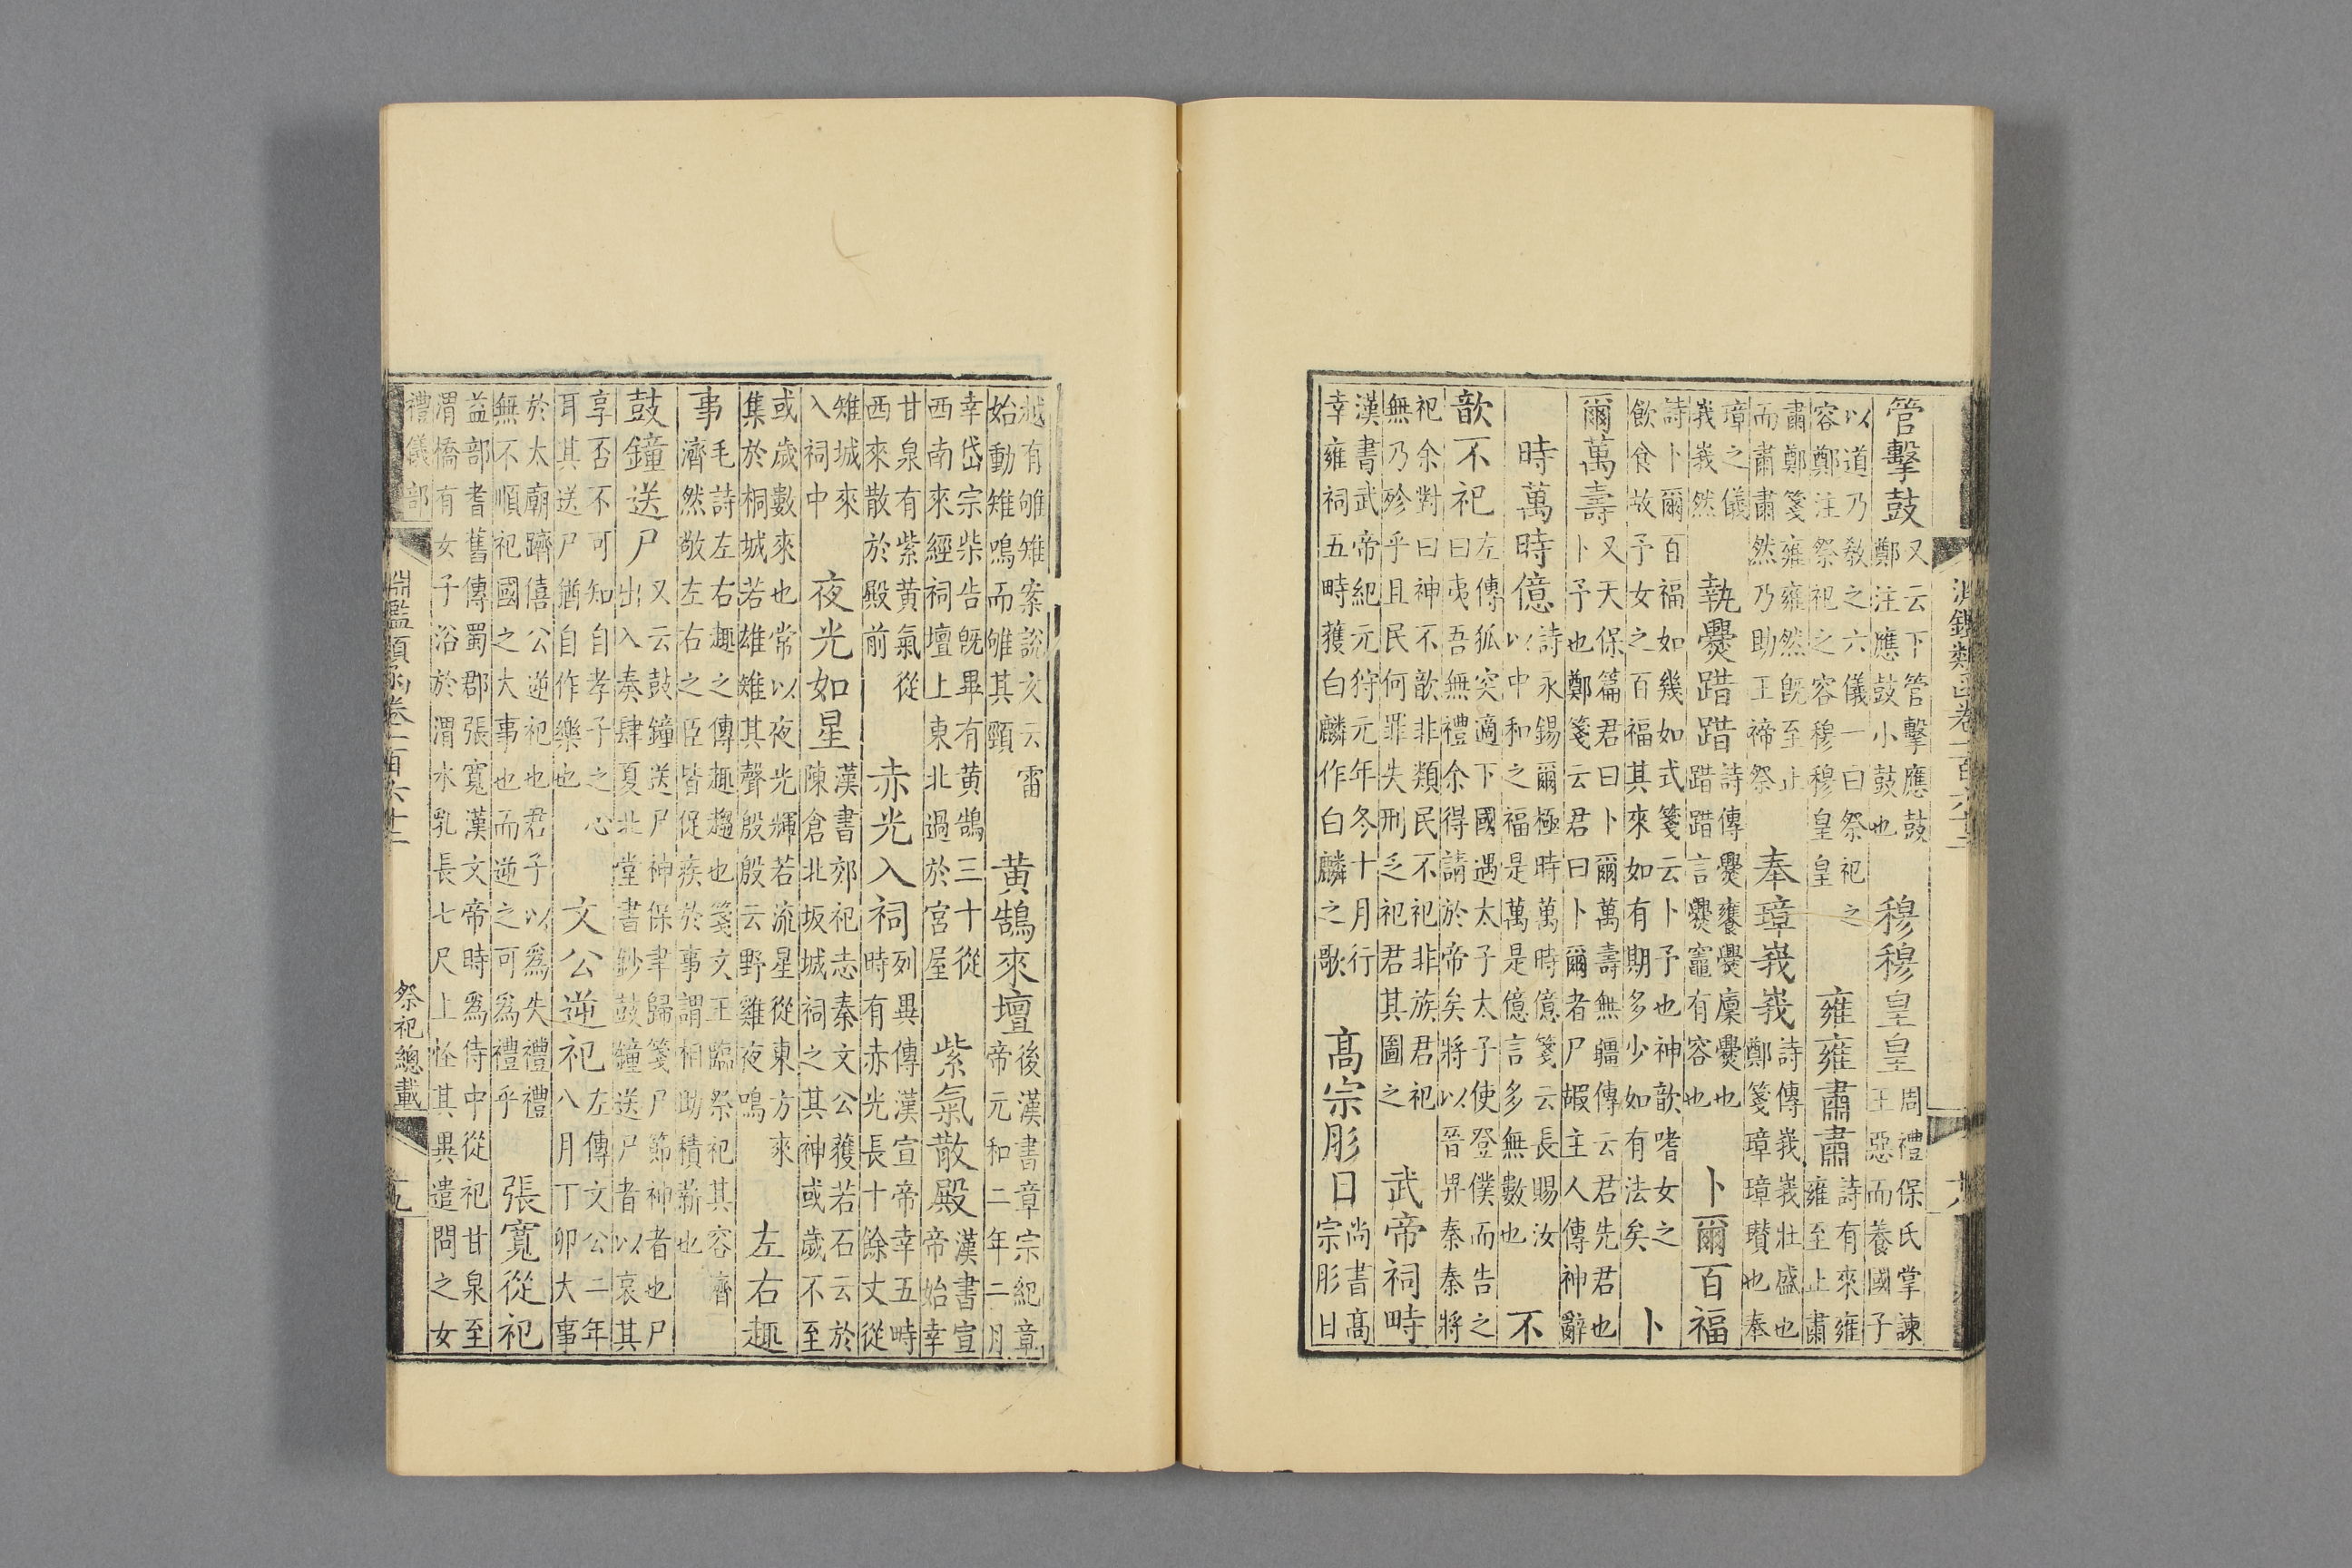 淵鑑類函卷一百六十二
十八
管擊鼓又云下管擊應鼓鄭注應鼓小鼓也穆穆皇皇周禮保氏掌諫王惡而養國子
以道乃敎之六儀一曰祭祀之容鄭注祭祀之容穆穆皇皇雍雍肅肅詩有來雍雍至止肅
肅鄭箋雍雍然既至止而肅肅然乃助王禘祭奉璋峩峩詩傳峩峩壯盛也鄭箋璋璋瓚也奉
璋之儀峩峩然執爨踖踖詩傳爨饔爨廩爨也踖踖言爨竈有容也卜爾百福
詩卜爾百福如幾如式箋云卜予也神歆嗜女之飲食故予女之百福其來如有期多少如有法矣卜
爾萬壽又天保篇君曰卜爾萬壽無疆傳云君先君也卜予也鄭箋云君曰卜爾者尸嘏主人傳神辭
時萬時億詩永錫爾極時萬時億箋云長賜汝以中和之福是萬是億言多無數也不
歆不祀左傳狐突適下國遇太子太子使登僕而告之曰夷吾無禮余得請於帝矣將以晉畀秦秦將
祀余對曰神不歆非類民不祀非族君祀無乃殄乎且民何罪失刑乏祀君其圖之武帝祠畤
漢書武帝紀元狩元年冬十月行幸雍祠五畤獲白麟作白麟之歌高宗肜日尚書高宗肜日
越有雊雉案說文云雷始動雉鳴而雊其頸黄鵠來壇後漢書章宗紀章帝元和二年二月
幸岱宗柴告既畢有黄鵠三十從西南來經祠壇上東北過於宮屋紫氣散殿漢書宣帝始幸
甘泉有紫黄氣從西來散於殿前赤光入祠列異傳漢宣帝幸五畤時有赤光長十餘丈從
雉城來入祠中夜光如星漢書郊祀志秦文公獲若石云於陳倉北坂城祠之其神或歲不至
或歲數來也常以夜光輝若流星從東方來集於桐城若雄雉其聲殷殷云野雞夜鳴左右趣
事毛詩左右趣之傳趣趨也箋文王臨祭祀其容濟濟然敬左右之臣皆促疾於事謂相助積薪也
鼓鐘送尸又云鼓鐘送尸神保聿歸箋尸節神者也尸出入奏肆夏北堂書鈔鼓鐘送尸者以哀其
享否不可知自孝子之心耳其送尸猶自作樂也文公逆祀左傳文公二年八月丁卯大事
於太廟躋僖公逆祀也君子以爲失禮禮無不順祀國之大事也而逆之可爲禮乎張寬從祀
益部耆舊傳蜀郡張寬漢文帝時爲侍中從祀甘泉至渭橋有女子浴於渭水乳長七尺上怪其異遣問之女
禮儀部
淵鑑類函卷一百六十二
祭祀總載
十九